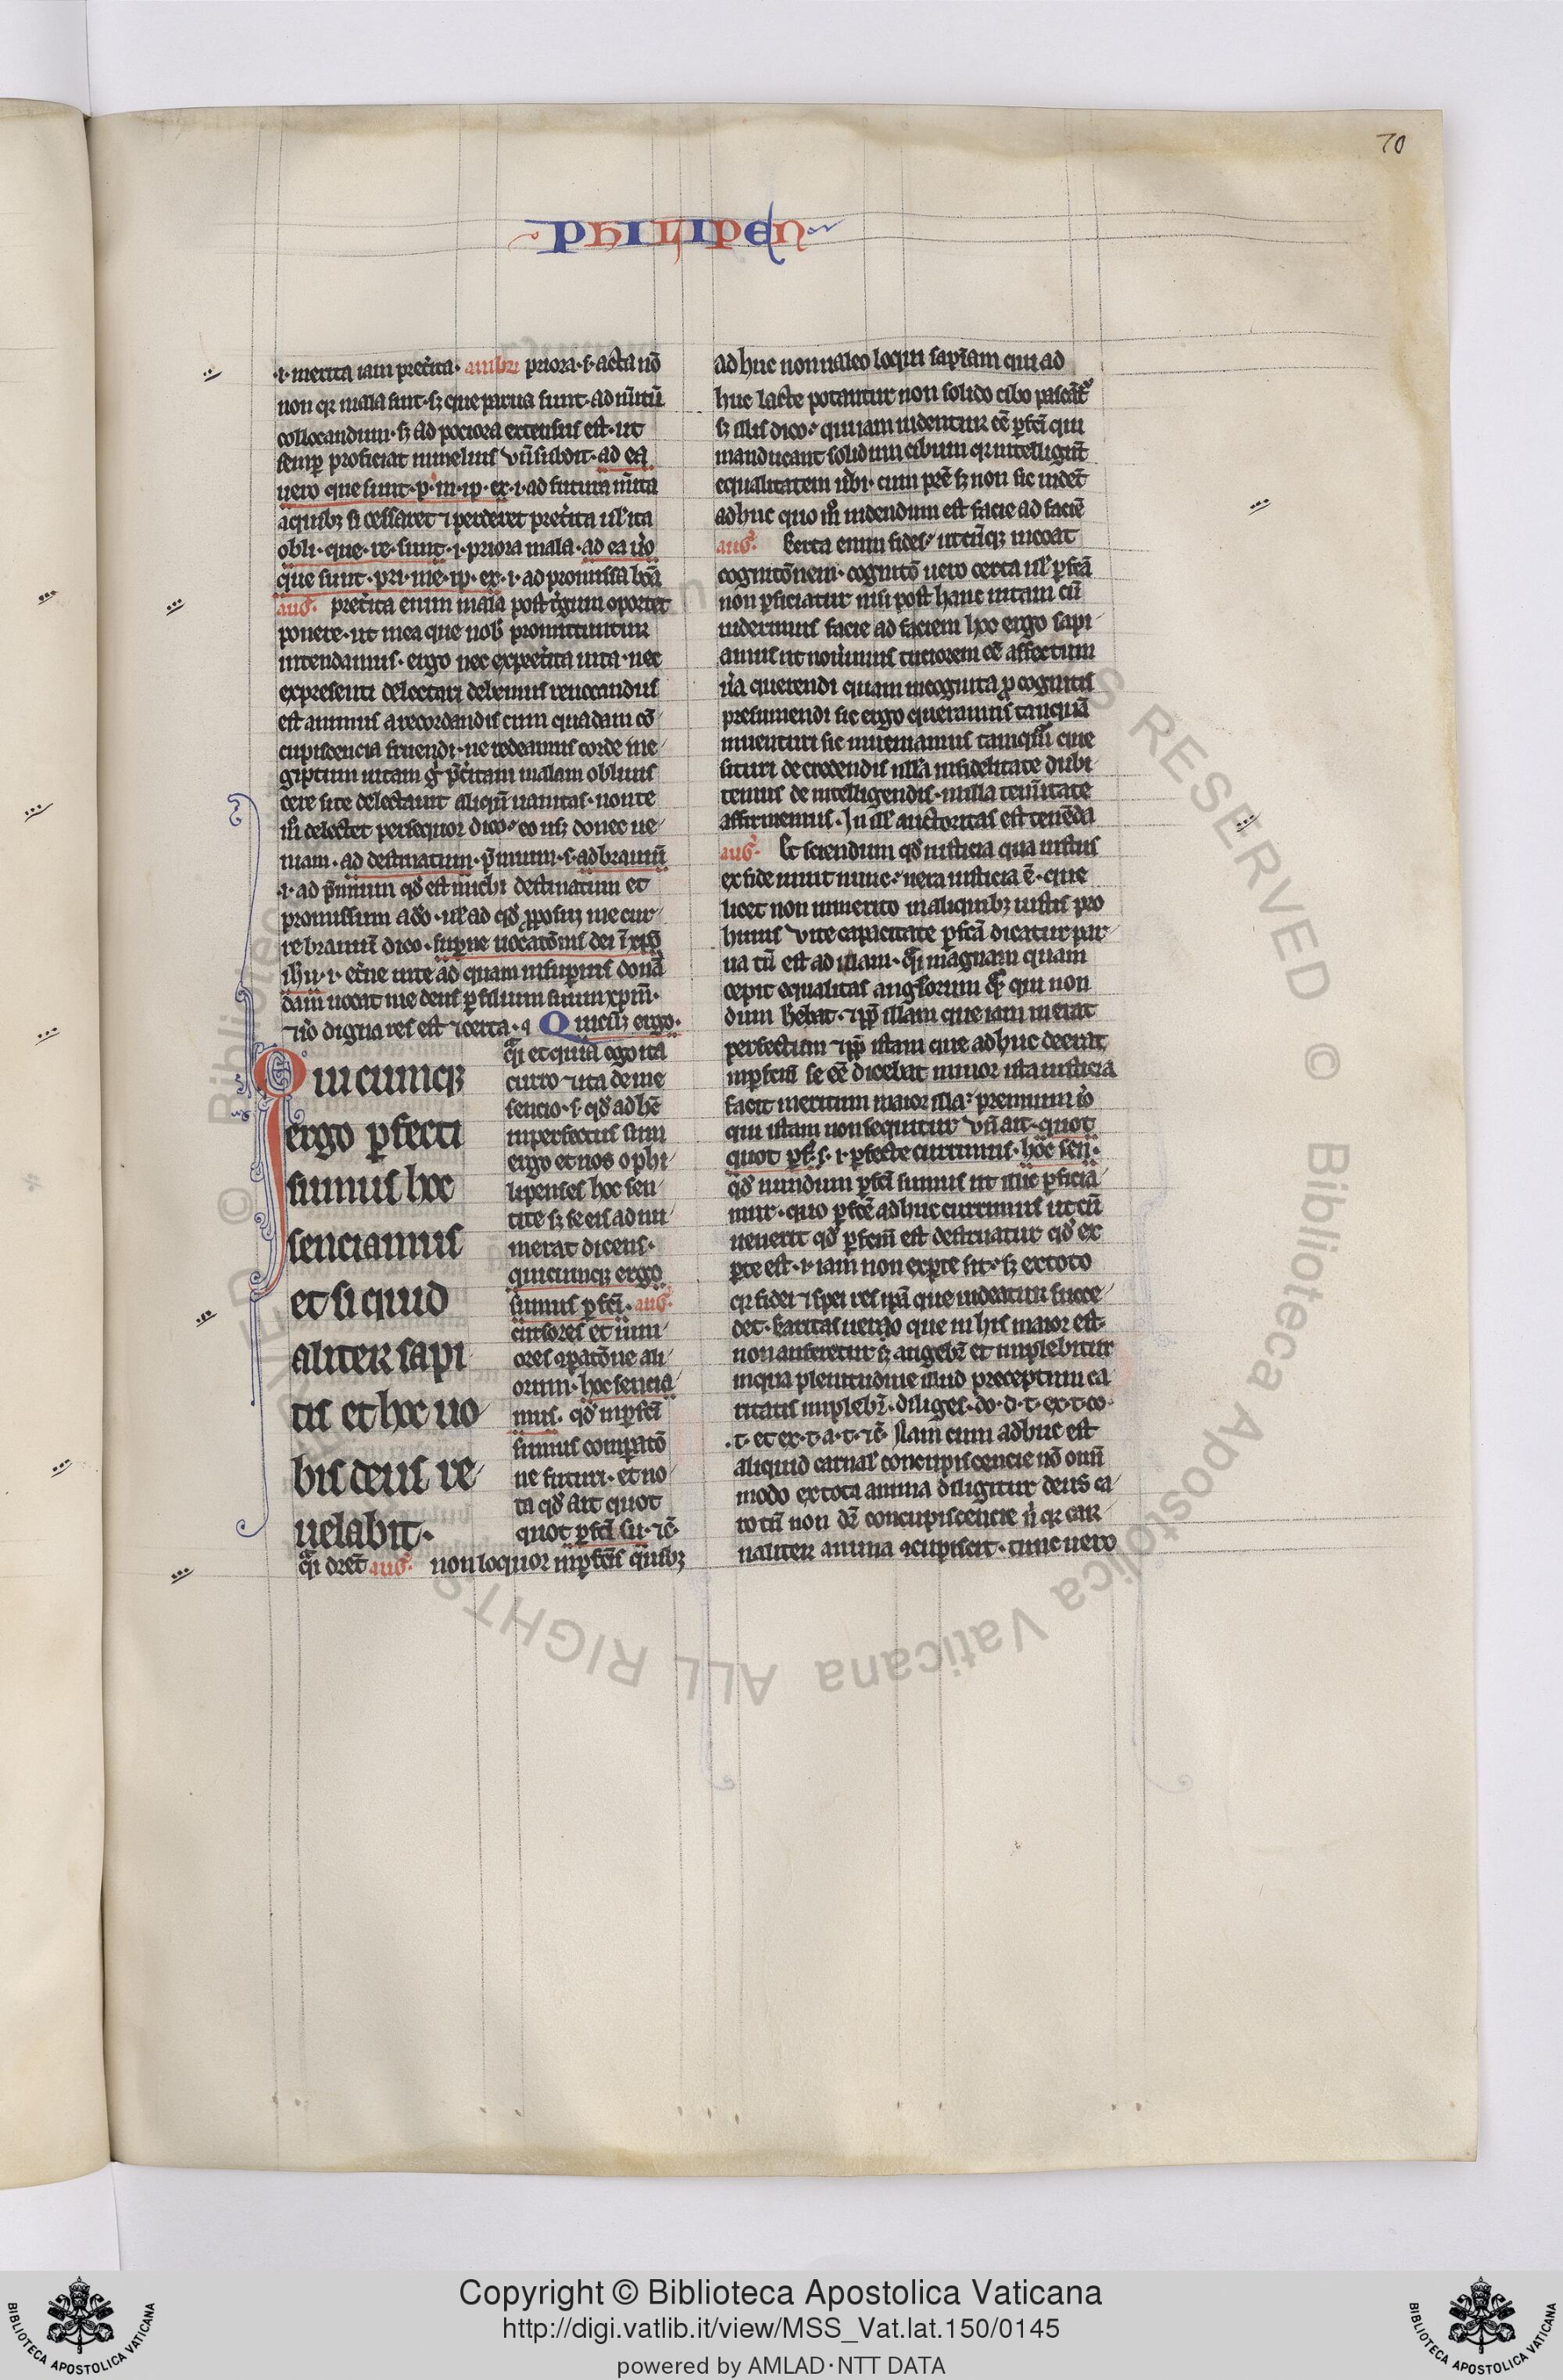 70
PHILIPEN
.i. merita iam pret̾ita. ambr̾ priora .s. acta nō
non qr mala sint. sꝫ que parua sunt. ad
collocandum. sꝫ ad pociora extensus est. ut
semꝑ proficiat in melius vn̄ subdit. ad ea
uero que sunt. p̾. m. ip. ex. i. ad futura
a quibꝫ si cessaret ⁊ perderet pret̾ita ul̾ ita
obli. que. re. sunt. i. priora mala. ad ea u̾o
que sunt. pri. me. ip. ex. i. ad promissa bona
aug̾. pret̾ita enim mala post t̾gum oportet
ponere. ut in ea que nob̾ promittuntur
intendamus. ergo nec ex pret̾ita uita. nec
ex presenti delectari debemus reuocandus
est animus a recordandis cum quadam cō
cupiscencia fruendi. ne redeamus corde in e
giptum uitam g̾ p̄t̾itam malam obliuis
cere si te delectauit aliqn̄ uanitas. non te
delectet persequor dico. eo usꝫ donec ue
niam. ad destinatum. p̄mium .s. ad brauiū
.i. ad p̄mium qđ est michi destinatum et
promissum a dō. ul̾ ad qđ ꝓposuꝫ me cur
re brauiū dico. suꝑne uocatōnis dei ī xp̄o
ih̄u .i. et̾ne uite ad quam in suꝑnis donā
dam uocat me deus ꝑ filium suum xp̄m.
⁊ u̾o digna res est ⁊ certa. Quicūqꝫ ergo.
Quicumqꝫ
ergo ꝑfecti
sumus hoc
senciamus
et si quid
aliter sapi
tis et hoc uo
bis deus re
uelabit.
q̄i et quia ego ita
curro ⁊ ita de me
sencio .s. qđ adhc̄
inperfectus sum
ergo et uos o phi
lipenses hoc sen
tite sꝫ se eis adnu
merat dicens.
quicumqꝫ ergo
sumus ꝑfcī. aug̾.
cursores et iuni
ores ꝯparatōne ali
orum. hoc sencia
mus. qđ inꝑfcī
sumus comparatō
ne futuri. et no
ta qđ ait quot
quot ꝑfcī su. ⁊c̄.
q̄i dret aug̾. non loquor inꝑfcīs quibꝫ
adhuc non ualeo loqui sapiam qui ad
huc lacte potantur non solido cibo pascūt̾
sꝫ illis dico. qui iam uidentur eē ꝑfcī qui
manducant solidum cibum qr intelligūt
equalitatem u̾bi. cum pr̄e sꝫ non sic uidet
adhuc quo m̊ uidendum est facie ad faciē
aug̾. Certa enim fides. utcūqꝫ incoat
cognitōnem. cognitō uero certa ul̾ ꝑfcā
non ꝑficiatur nisi post hanc uitam cū
uiderimus facie ad faciem hoc ergo sapi
amus ut nou̾imus tuciorem eē affectum
u̾a querendi quam incognita ꝓ cognitis
presumendi sic ergo queramus tanquā
inuenturi sic inueniamus tamquā que
situri de credendis nulla infidelitate dubi
temus de intelligendis. nulla tem̾itate
affirmemus. In ill̾ auctoritas est tenēda
aug̾. Et sciendum qđ iusticia qua iustus
ex fide uiuit nunc. uera iusticia ē. que
licet non inmerito in aliquibꝫ iustis pro
huius vite capacitate ꝑfcā dicatur par
ua tn̄ est ad illam. q̄i magnam quam
cepit equalitas anglorum qui non
dum habebat. ⁊ ꝓpt̾ illam que iam inerat
perfectum ⁊ ꝓpt̾ istam que adhuc deerat
inꝑfcm̄ se eē dicebat minor ista iusticia
facit meritum maior illa. premium u̾o
qui istam non sequitur vn̄ ait. quot
quot ꝑf. s. i. ꝑfecte currimus. hoc sen.
qđ nundum ꝑfcī sumus ut illuc ꝑficia
mur. quo ꝑfcē adhuc currimus ut cū
uenerit qđ ꝑfcm̄ est destruatur qđ ex
ꝑte est. i. iam non ex ꝑte sit. sꝫ ex toto
qr fidei ⁊ spei res ipā que uideatur succe
det. karitas uero que in his maior est.
non auferetur sꝫ augebr̄ et implebitur
in qua plenitudine illud preceptum ca
ritatis implebr̄. diliges. do. d. t. ex. t. co.
.t. et ex. t. a. t. ⁊c̄. Nam cum adhuc est
aliquid carnal̾ concupiscencie nō omī
modo ex tota anima diligitur deus ca
ro tn̄ non dr̄ concupiscencie n̾ qr car
naliter anima ꝯcupiscit. tunc uero
Copyright © Biblioteca Apostolica Vaticana
http://digi.vatlib.it/view/MSS_Vat.lat.150/0145
powered by AMLAD·NTT DATA
BIBLIOTECA APOSTOLICA VATICANA
BIBLIOTECA APOSTOLICA VATICANA
© Biblioteca Apostolica Vaticana ALL RIGHTS RESERVED